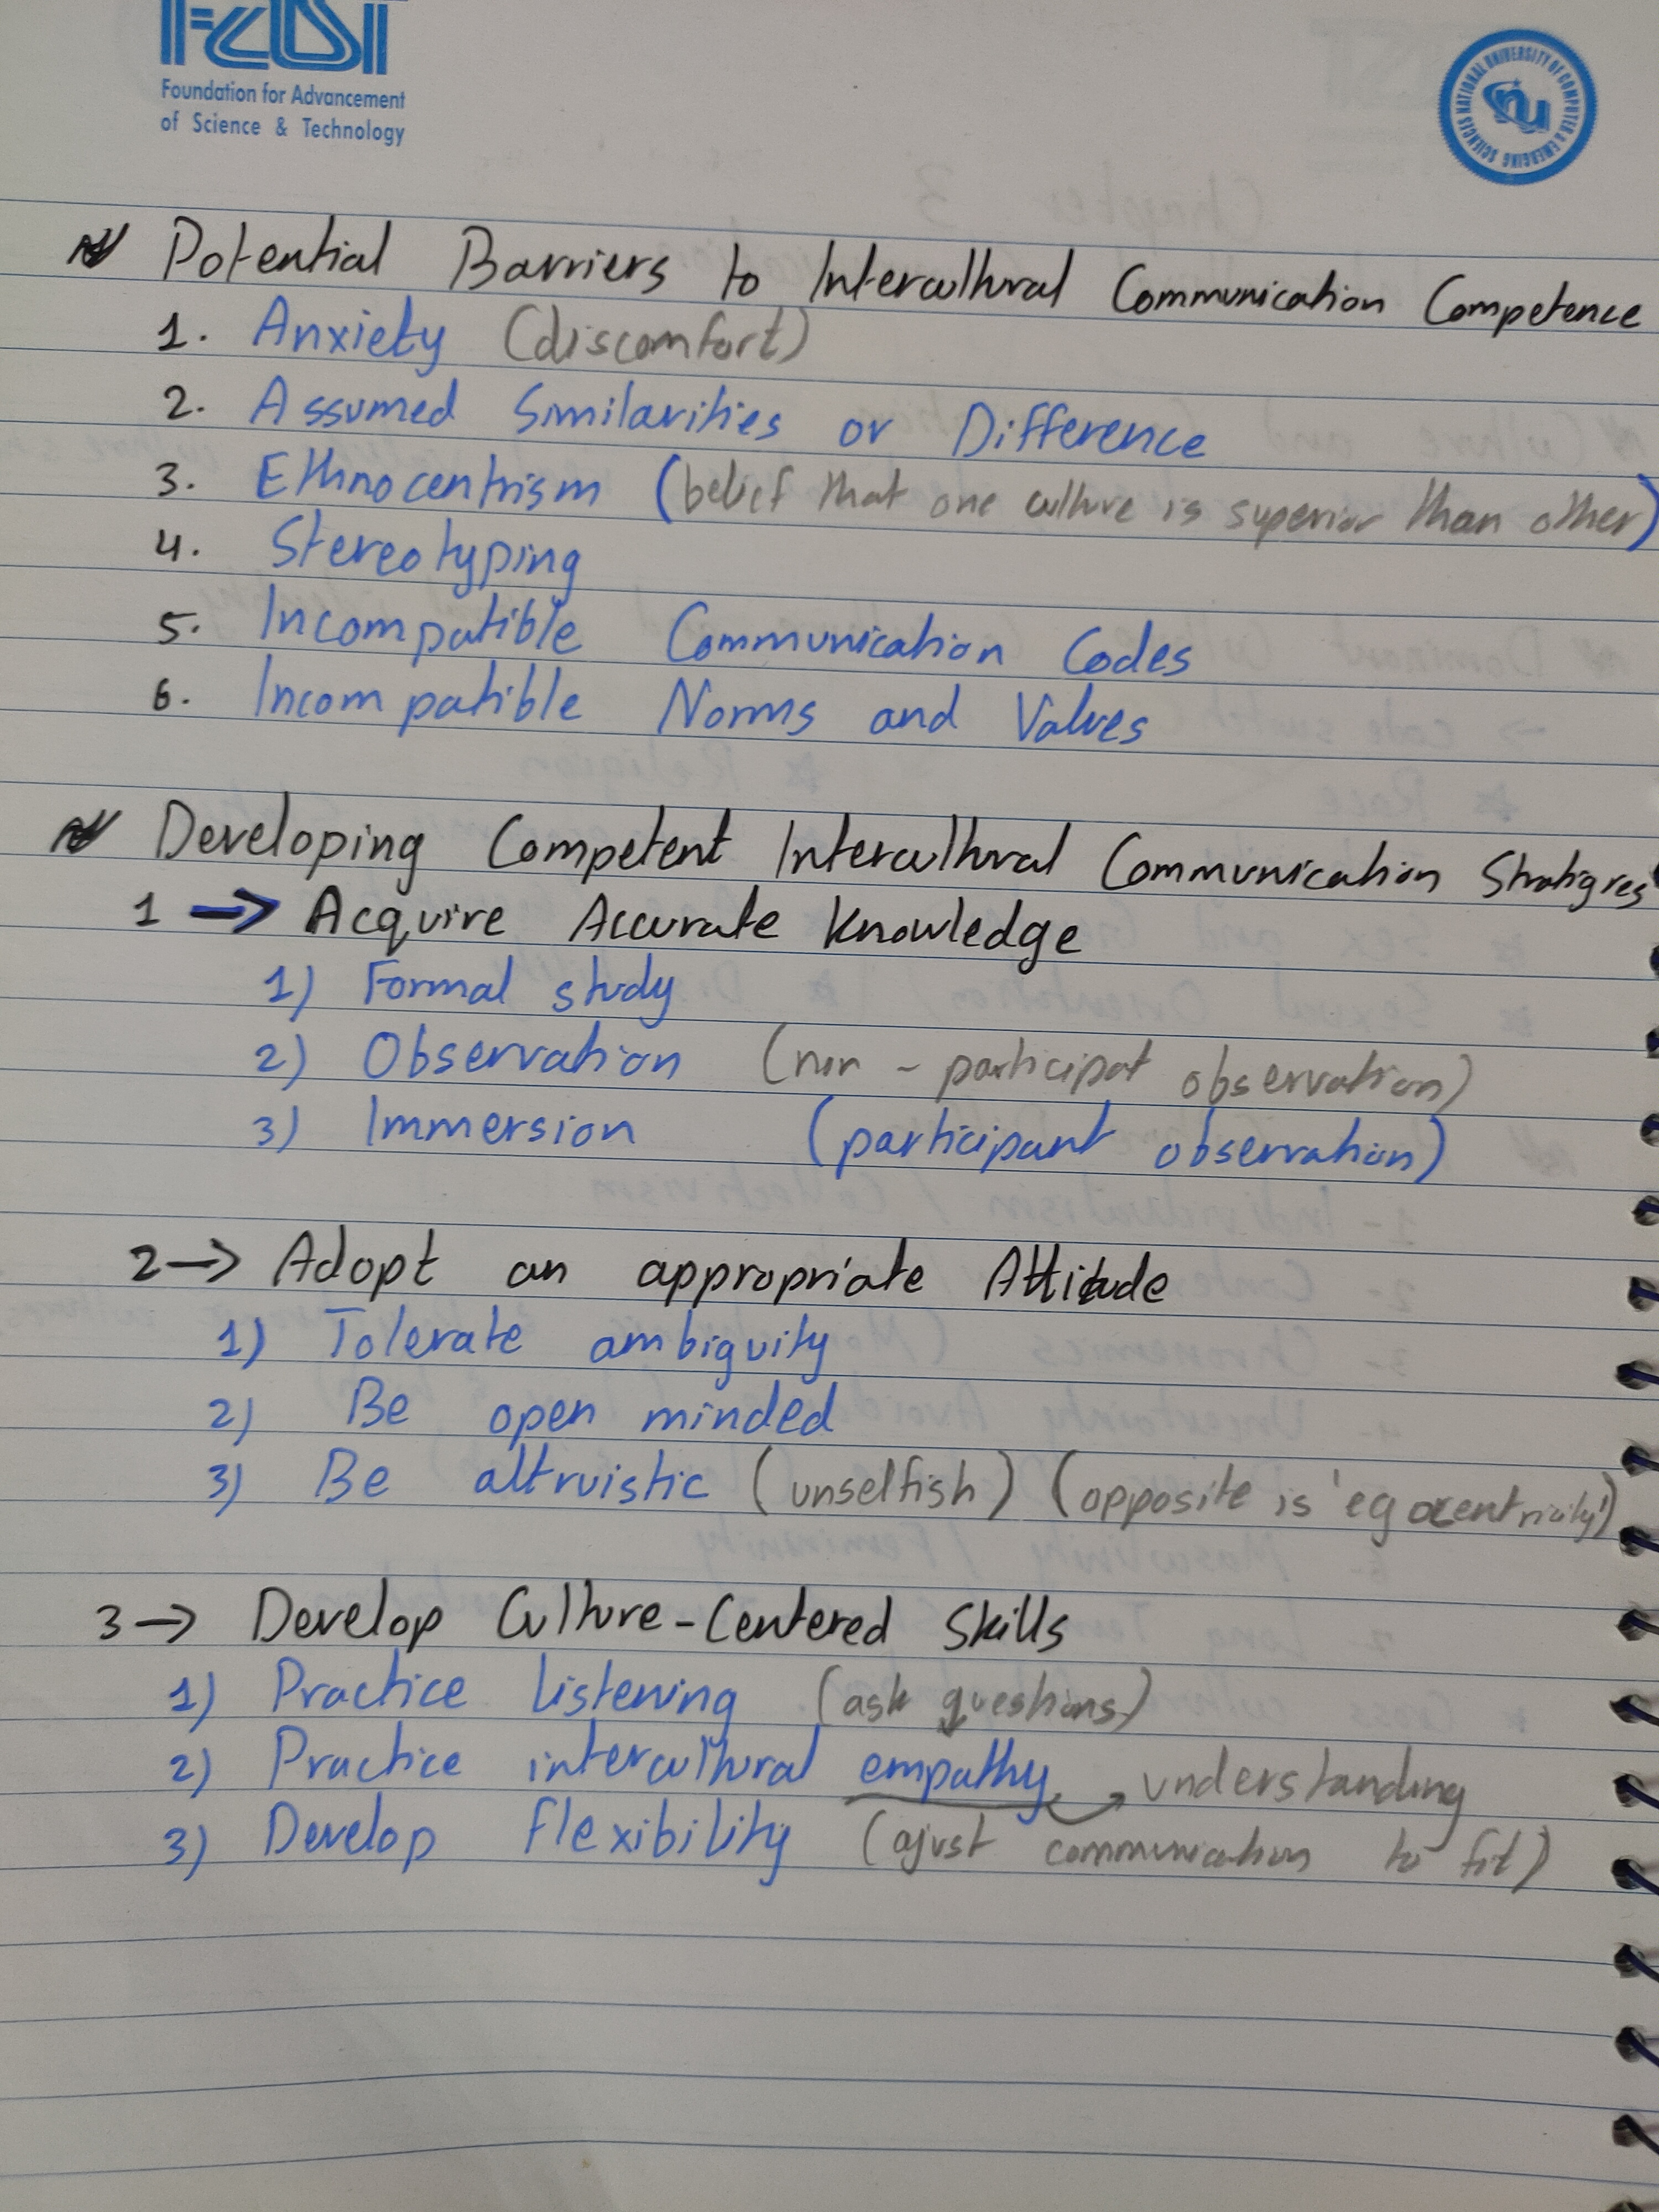 FAST
Foundation for Advancement
of Science & Technology
NATIONAL UNIVERSITY OF COMPUTER & EMERGING SCIENCES
nu
Potential Barriers to Intercultural Communication Competence
1. Anxiety (discomfort)
2. Assumed Similarities or Difference
3. Ethnocentrism (belief that one culture is superior than other)
4. Stereotyping
5. Incompatible Communication Codes
6. Incompatible Norms and Values
Developing Competent Intercultural Communication
1 → Acquire Accurate Knowledge
1) Formal study
2) Observation (non - participat observation)
3) Immersion (participant observation)
2 → Adopt an appropriate Attitude
1) Tolerate ambiguity
2) Be open minded
3) Be altruistic (unselfish) (opposite is 'egocentricity')
3 → Develop Culture-Centered Skills
1) Practice listening (ask questions)
2) Practice intercultural empathy → understanding
3) Develop flexibility (ajust communication to fit)